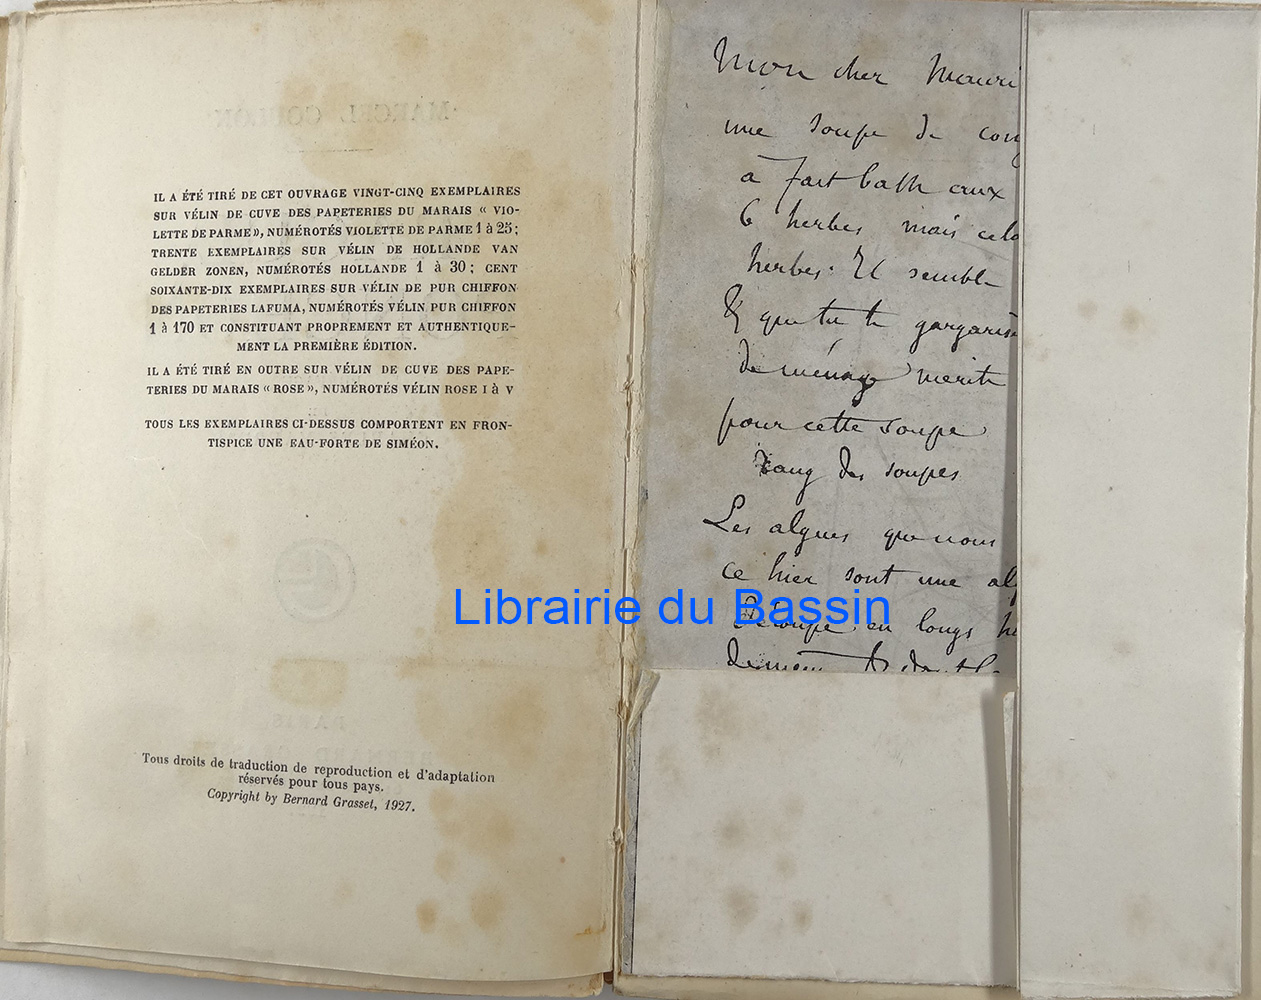 IL A ÉTÉ TIRÉ DE CET OUVRAGE VINGT-CINQ EXEMPLAIRES
SUR VÉLIN DE CUVE DES PAPETERIES DU MARAIS « VIO-
LETTE DE PARME », NUMÉROTÉS VIOLETTE DE PARME 1 à 25 ;
TRENTE EXEMPLAIRES SUR VÉLIN DE HOLLANDE VAN
GELDER ZONEN, NUMÉROTÉS HOLLANDE 1 à 30 ; CENT
SOIXANTE-DIX EXEMPLAIRES SUR VÉLIN DE PUR CHIFFON
DES PAPETERIES LAFUMA, NUMÉROTÉS VÉLIN PUR CHIFFON
1 à 170 ET CONSTITUANT PROPREMENT ET AUTHENTIQUE-
MENT LA PREMIÈRE ÉDITION.
IL A ÉTÉ TIRÉ EN OUTRE SUR VÉLIN DE CUVE DES PAPE-
TERIES DU MARAIS « ROSE », NUMÉROTÉS VÉLIN ROSE I à V
TOUS LES EXEMPLAIRES CI-DESSUS COMPORTENT EN FRON-
TISPICE UNE EAU-FORTE DE SIMÉON.
Tous droits de traduction de reproduction et d'adaptation
réservés pour tous pays.
Copyright by Bernard Grasset, 1927.
Mon cher Mauri
une soupe de con
à aux
6 herbes mais cela
herbes. Il semble
& que tu te gargaris
de ménage mérite
pour cette soupe
rang des soupes
Les algues que nous
ce hier sont une al
découpé en longs
Librairie du Bassin